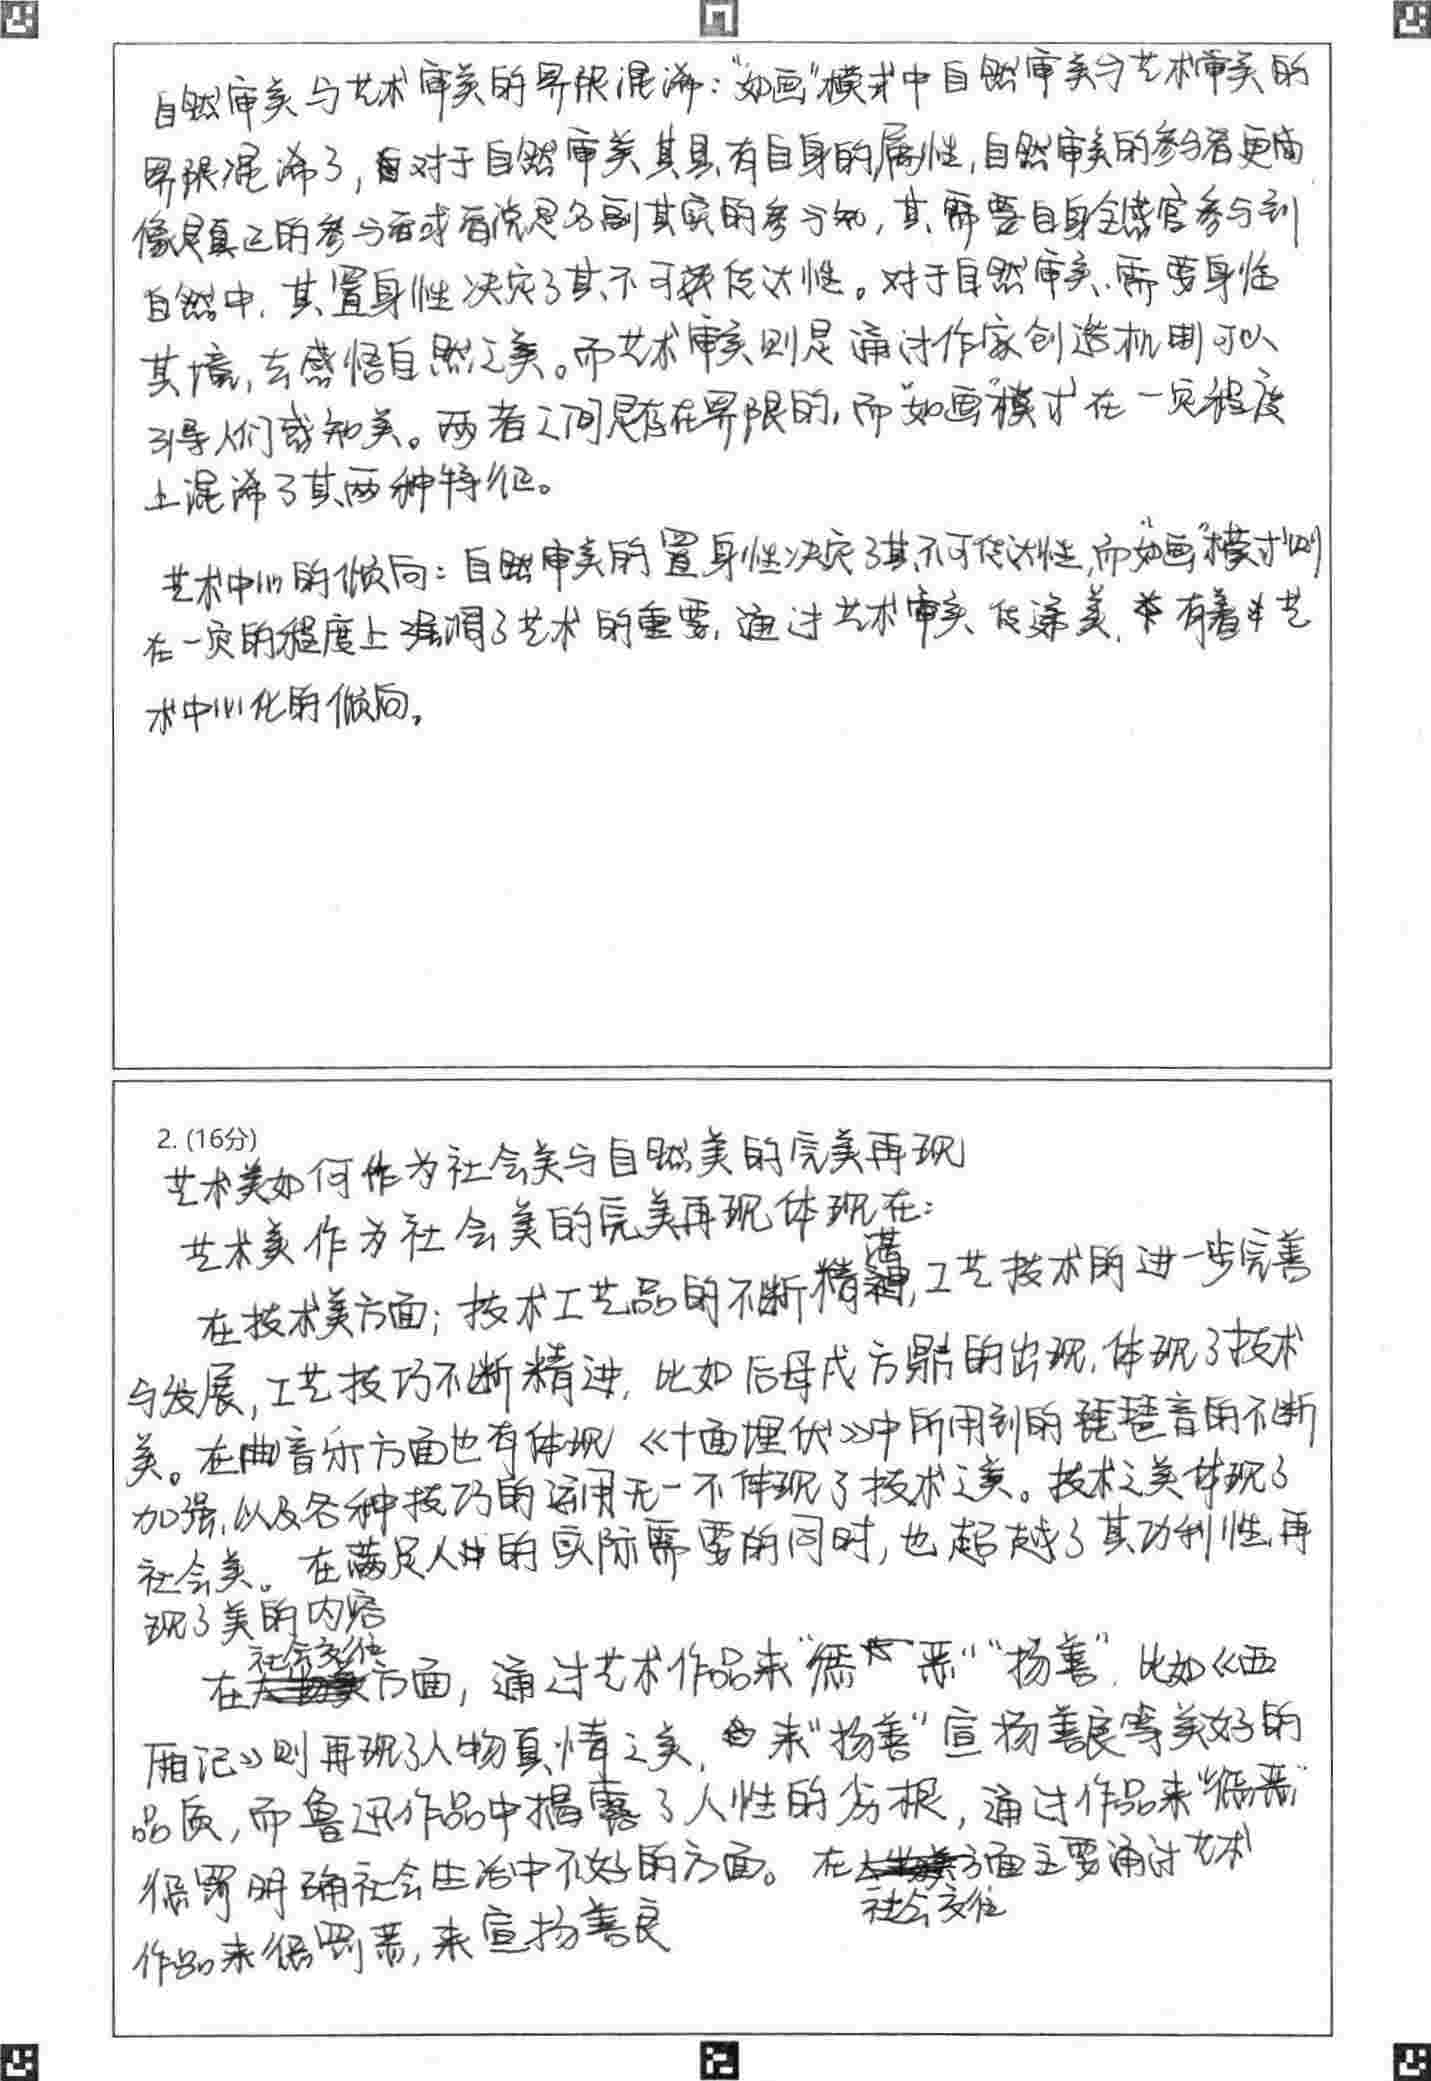 自然审美与艺术审美的界限混淆："如画"模式中自然审美与艺术审美的
界限混淆了，对于自然审美其具有自身的属性，自然审美的参与者更
像是真正的参与者或者说是名副其实的参与者，其需要自身全感官参与到
自然中，其置身性决定了其不可传达性。对于自然审美，需要身临
其境，去感悟自然之美。而艺术审美则是通过作家创造机制可以
引导人们感知美。两者之间是存在界限的，而"如画"模式在一定程度
上混淆了其两种特征。
艺术中心的倾向：自然审美的置身性决定了其不可传达性，而"如画"模式则
在一定的程度上强调了艺术的重要，通过艺术审美传递美，有着艺
术中心化的倾向。
2. (16分)
艺术美如何作为社会美与自然美的完美再现
艺术美作为社会美的完美再现体现在：
在技术美方面；技术工艺品的不断精湛，工艺技术的进一步完善
与发展，工艺技巧不断精进，比如后母戊方鼎的出现，体现了技术
美。在音乐方面也有体现《十面埋伏》中所用到的琵琶音的不断
加强，以及各种技巧的运用无一不体现了技术之美。技术之美体现了
社会美。在满足人的实际需要的同时，也超越了其功利性，再
现了美的内容
在社会交往方面，通过艺术作品来"惩恶""扬善"，比如《西
厢记》则再现了人物真情之美，来"扬善"宣扬善良等美好的
品质，而鲁迅作品中揭露了人性的劣根，通过作品来"惩恶"
惩罚明确社会生活中不好的方面。在社会交往方面主要通过艺术
作品来惩罚恶，来宣扬善良